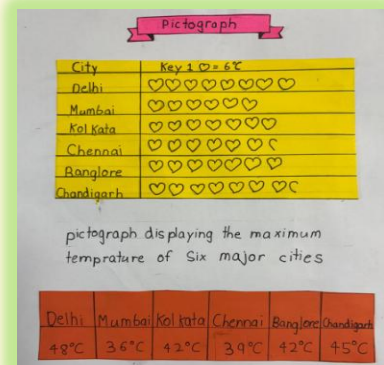 Pictograph
City Key 1 ♡ = 6°C
Delhi ♡♡♡♡♡♡♡♡
Mumbai ♡♡♡♡♡♡
Kolkata ♡♡♡♡♡♡♡
Chennai
Banglore ♡♡♡♡♡♡♡
Chandigarh
pictograph displaying the maximum
temprature of Six major cities
Delhi Mumbai Kolkata Chennai Banglore Chandigarh
48°C 36°C 42°C 39°C 42°C 45°C